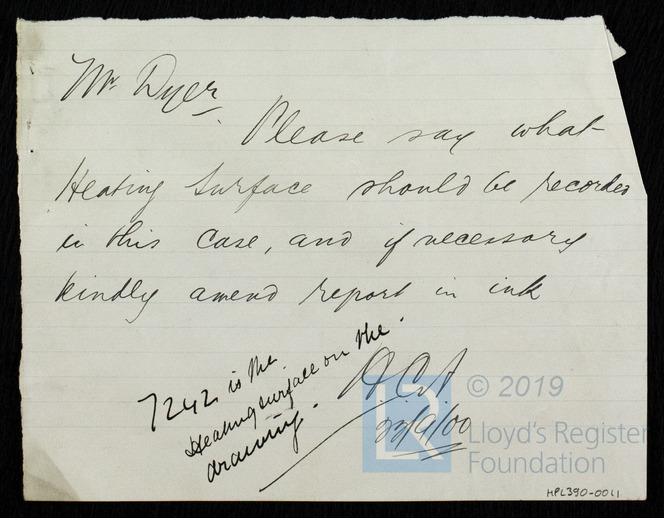 Mr. Dyer,
Please say what
Heating Surface should be recorded
in this case, and if necessary
kindly amend report in ink
7242 is the
Heating surface on the
drawing.
23/9/00
© 2019
LR
Lloyd's Register
Foundation
HPL390-0011